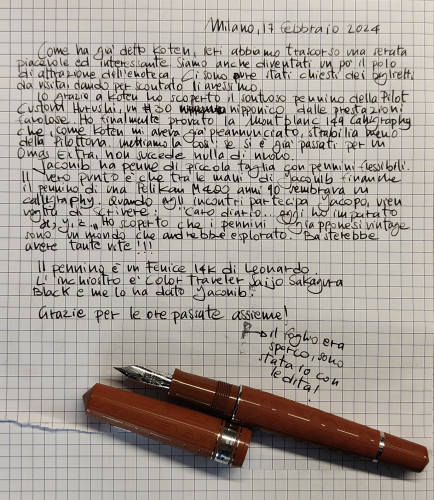 Milano, 17 febbraio 2024
Come ha già detto Koten, ieri abbiamo trascorso una serata
piacevole ed interessante. Siamo anche diventati un po' il polo
di attrazione dell'enoteca. Ci sono pure stati chiesti dei biglietti
da visita, dando per scontato li avessimo.
Io grazie a Koten ho scoperto il sontuoso pennino della Pilot
Custom Urushi, un #30 nipponico dalle prestazioni
favolose. Ho finalmente provato la Montblanc 149 Calligraphy
che, come Koten mi aveva già preannunciato, strabilia meno
della Pilottona. Mettiamola così: se si è già passati per un
Omas Extra, non succede nulla di nuovo.
Jaconib ha penne di piccola taglia con pennini flessibili.
Il vero punto è che tra le mani di Jaconib finanche
il pennino di una Pelikan M400 anni 90 sembrava un
calligraphy. Quando agli incontri partecipa Jacopo, vien
voglia di scrivere: "Caro diario, oggi ho imparato
x, y, z". Ho scoperto che i pennini giapponesi vintage
sono un mondo che andrebbe esplorato. Basterebbe
avere tante vite!!!
Il pennino è un Fenice 14k di Leonardo.
L'inchiostro è Color Traveler Saijo Sakagura
Black e me lo ha dato Jaconib.
Grazie per le ore passate assieme!
il foglio era
sporco, sono
stata io con
le dita!